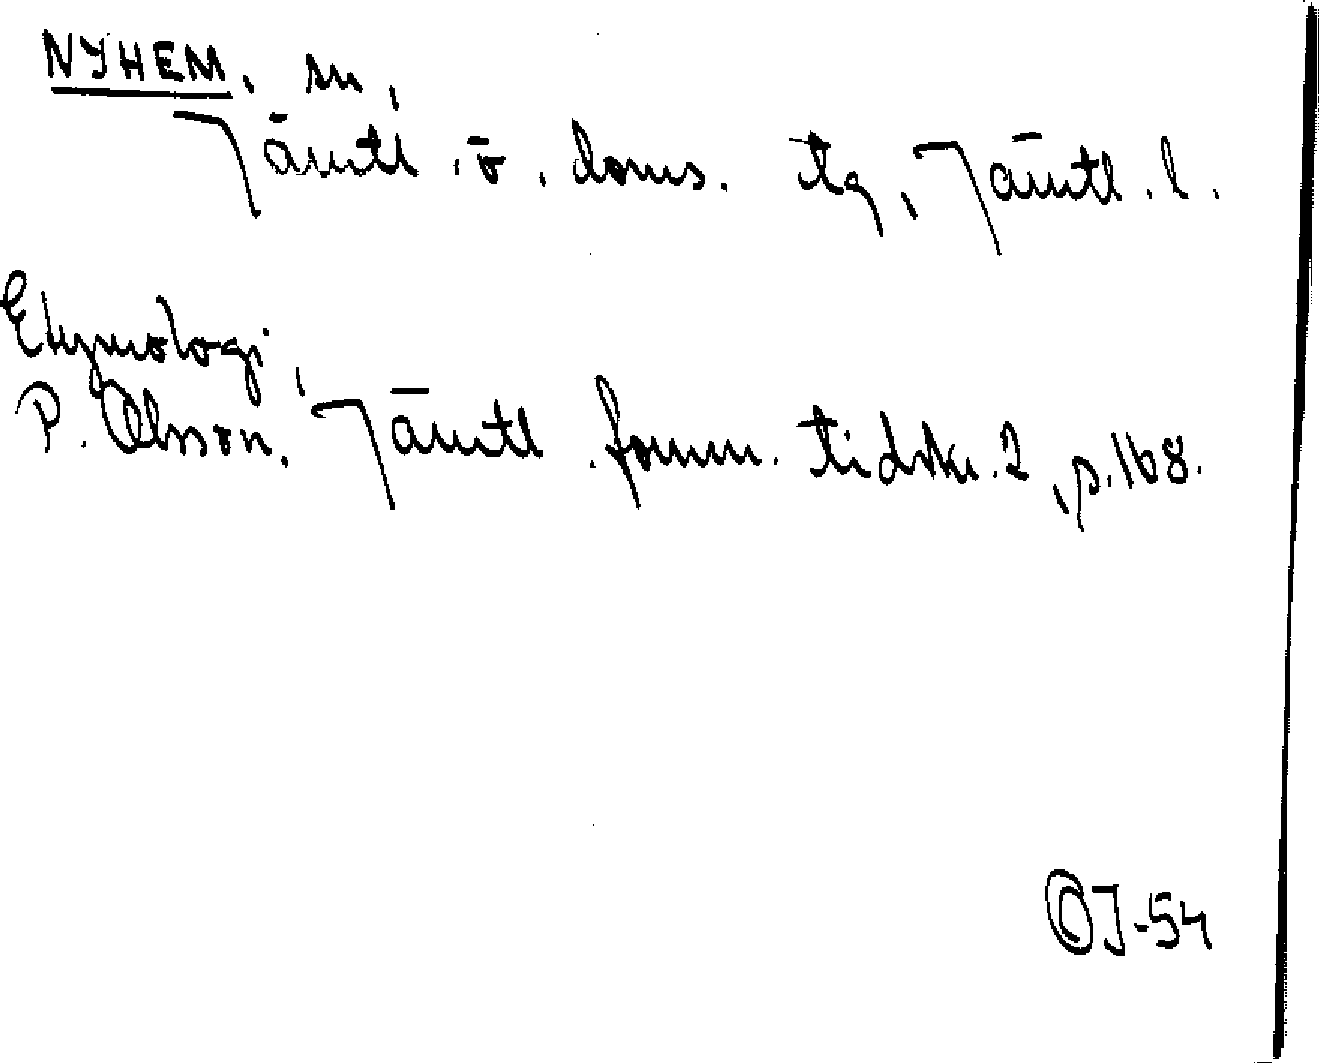 NYHEM, sn,
Jämtl. ö. doms. tg, Jämtl. l.
Etymologi,
P. Olsson, Jämtl. fornm. tidskr. 2, p. 168.
OJ-54